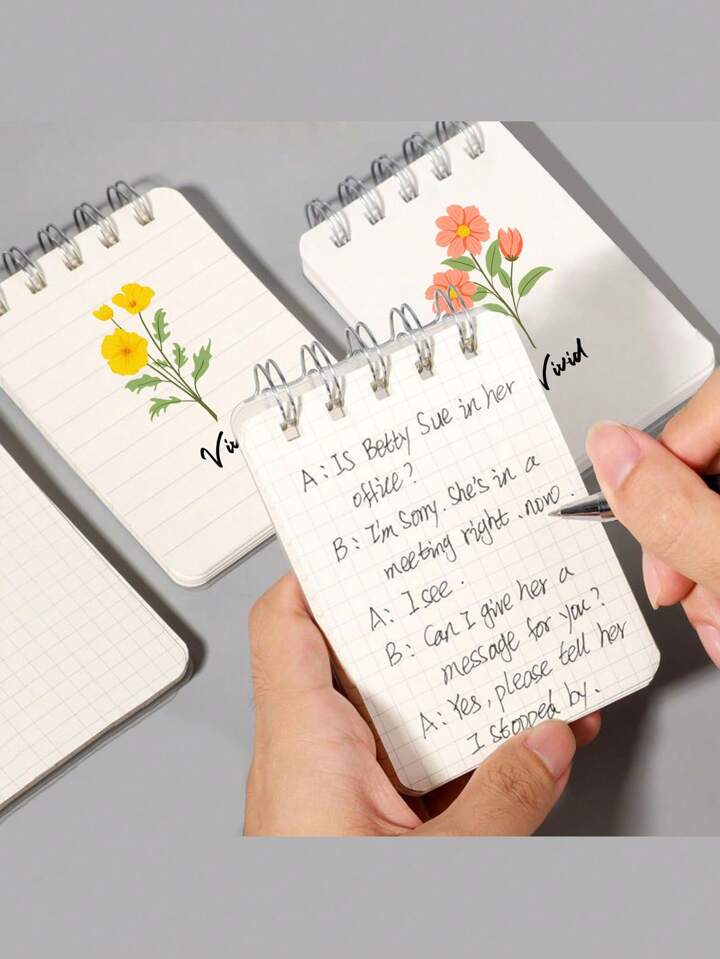 Vivid
A: Is Betty Sue in her
office?
B: I'm Sorry. She's in a
meeting right .now.
A: I see.
B: Can I give her a
message for you?
A: Yes, please tell her
I stopped by.